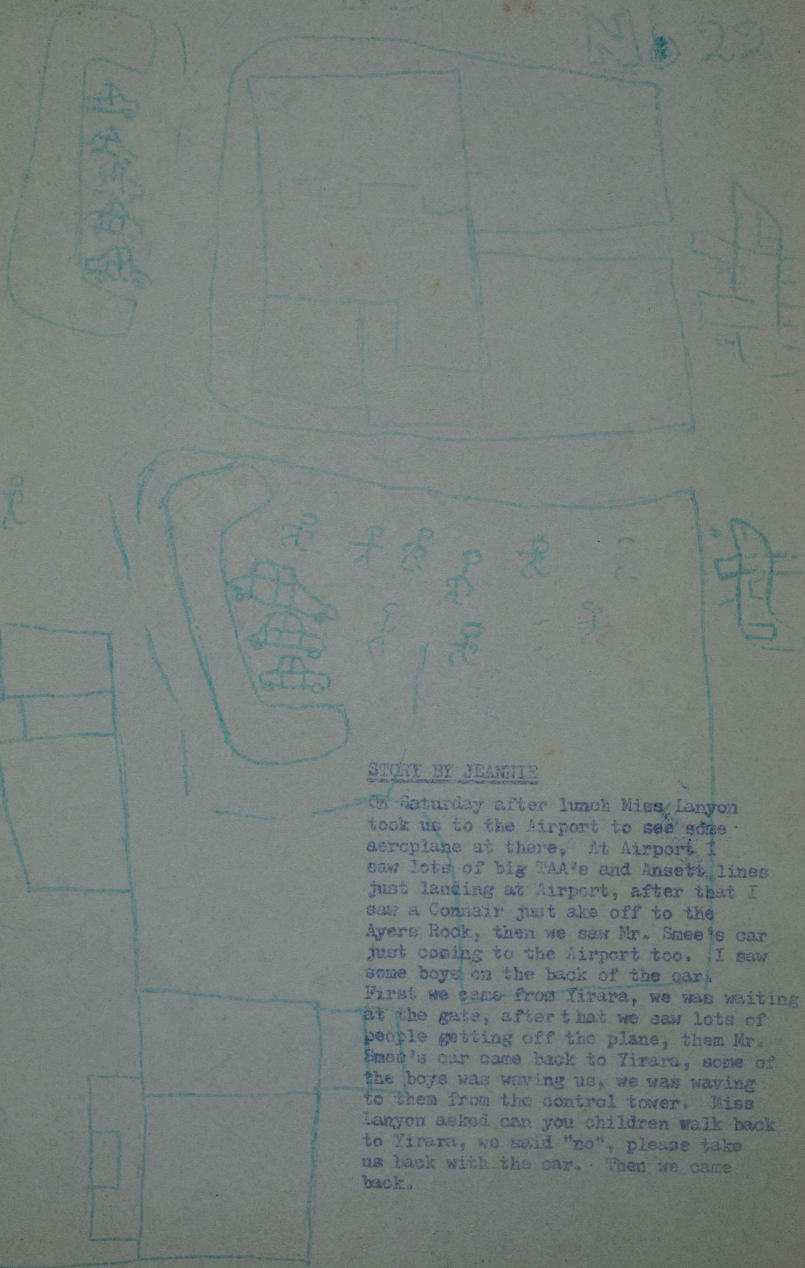 22
STORY BY JEANNIE
On Saturday after lunch Miss Lanyon
took us to the Airport to see some
aeroplane at there, At Airport I
saw lots of big TAA's and Ansett lines
just landing at Airport, after that I
saw a Connair just ake off to the
Ayers Rock, then we saw Mr. Smee's car
just coming to the Airport too. I saw
some boys on the back of the car.
First we came from Yirara, we was waiting
at the gate, after that we saw lots of
people getting off the plane, them Mr.
Smee's car came back to Yirara, some of
the boys was waving us, we was waving
to them from the control tower. Miss
Lanyon asked can you children walk back
to Yirara, we said "no", please take
us back with the car. Then we came
back.